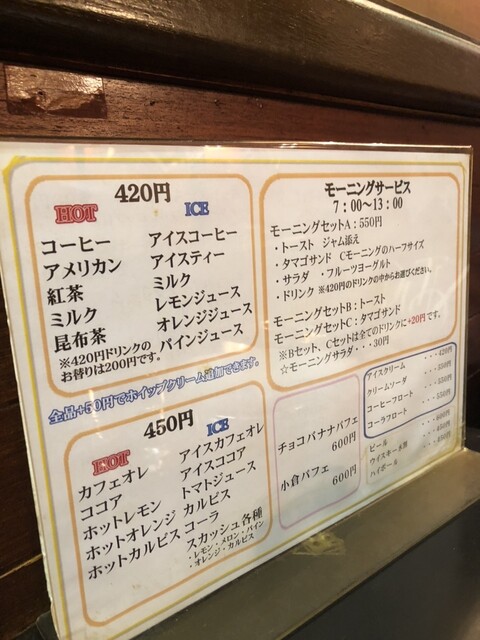 420円
HOT
コーヒー
アメリカン
紅茶
ミルク
昆布茶
※420円ドリンクの
お替りは200円です。
ICE
アイスコーヒー
アイスティー
ミルク
レモンジュース
オレンジジュース
パインジュース
全品+50円でホイップクリーム追加できます。
450円
HOT
カフェオレ
ココア
ホットレモン
ホットオレンジ
ホットカルピス
ICE
アイスカフェオレ
アイスココア
トマトジュース
カルピス
コーラ
スカッシュ各種
・レモン・メロン・パイン
・オレンジ・カルピス
モーニングサービス
7：00～13：00
モーニングセットA：550円
・トースト ジャム添え
・タマゴサンド Cモーニングのハーフサイズ
・サラダ ・フルーツヨーグルト
・ドリンク ※420円のドリンクの中からお選びください。
モーニングセットB：トースト
モーニングセットC：タマゴサンド
※Bセット、Cセットは全てのドリンクに+20円です。
☆モーニングサラダ・・・30円
チョコバナナパフェ
600円
小倉パフェ
600円
アイスクリーム ・・・420円
クリームソーダ ・・・550円
コーヒーフロート ・・・550円
コーラフロート ・・・550円
ビール
ウイスキー水割
ハイボール